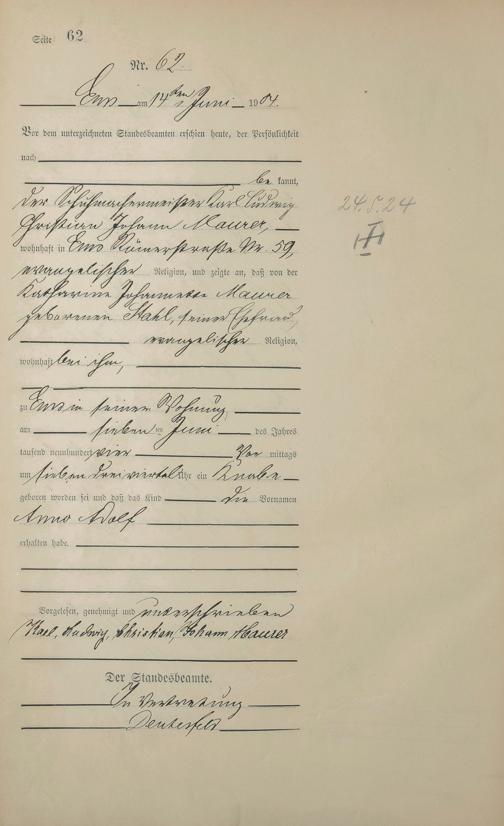 Seite 62
Nr. 62.
Ems am 14ten Juni 1904.
Vor dem unterzeichneten Standesbeamten erschien heute, der Persönlichkeit
nach
be kannt,
der Schuhmachermeister Karl Ludwig
Christian Johann Maurer,
24.5.24
wohnhaft in Ems Römerstraße Nr. 59,
evangelischer Religion, und zeigte an, daß von der
Katharine Johannette Maurer
geborenen Stahl, seiner Ehefrau,
evangelischer Religion,
wohnhaft bei ihm,
zu Ems in seiner Wohnung
am sieben ten Juni des Jahres
tausend neunhundert vier Vor mittags
um sieben dreiviertel Uhr ein Knabe
geboren worden sei und daß das Kind die Vornamen
Anno Adolf
erhalten habe.
Vorgelesen, genehmigt und unterschrieben
Karl, Ludwig, Christian, Johann Maurer
Der Standesbeamte.
In Vertretung